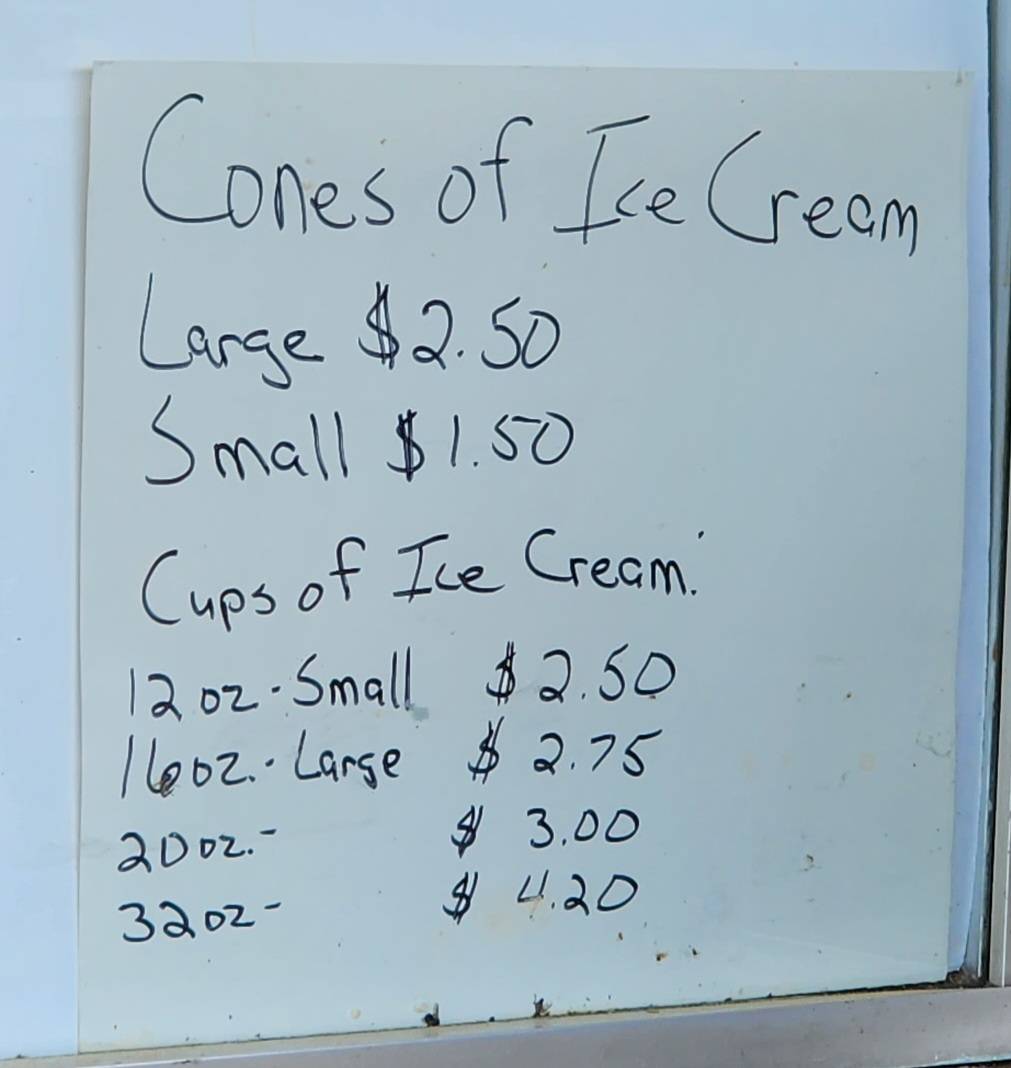 Cones of Ice Cream
Large $2.50
Small $1.50
Cups of Ice Cream:
12 oz - Small $2.50
16 oz. - Large $2.75
20 oz. - $3.00
32 oz - $4.20